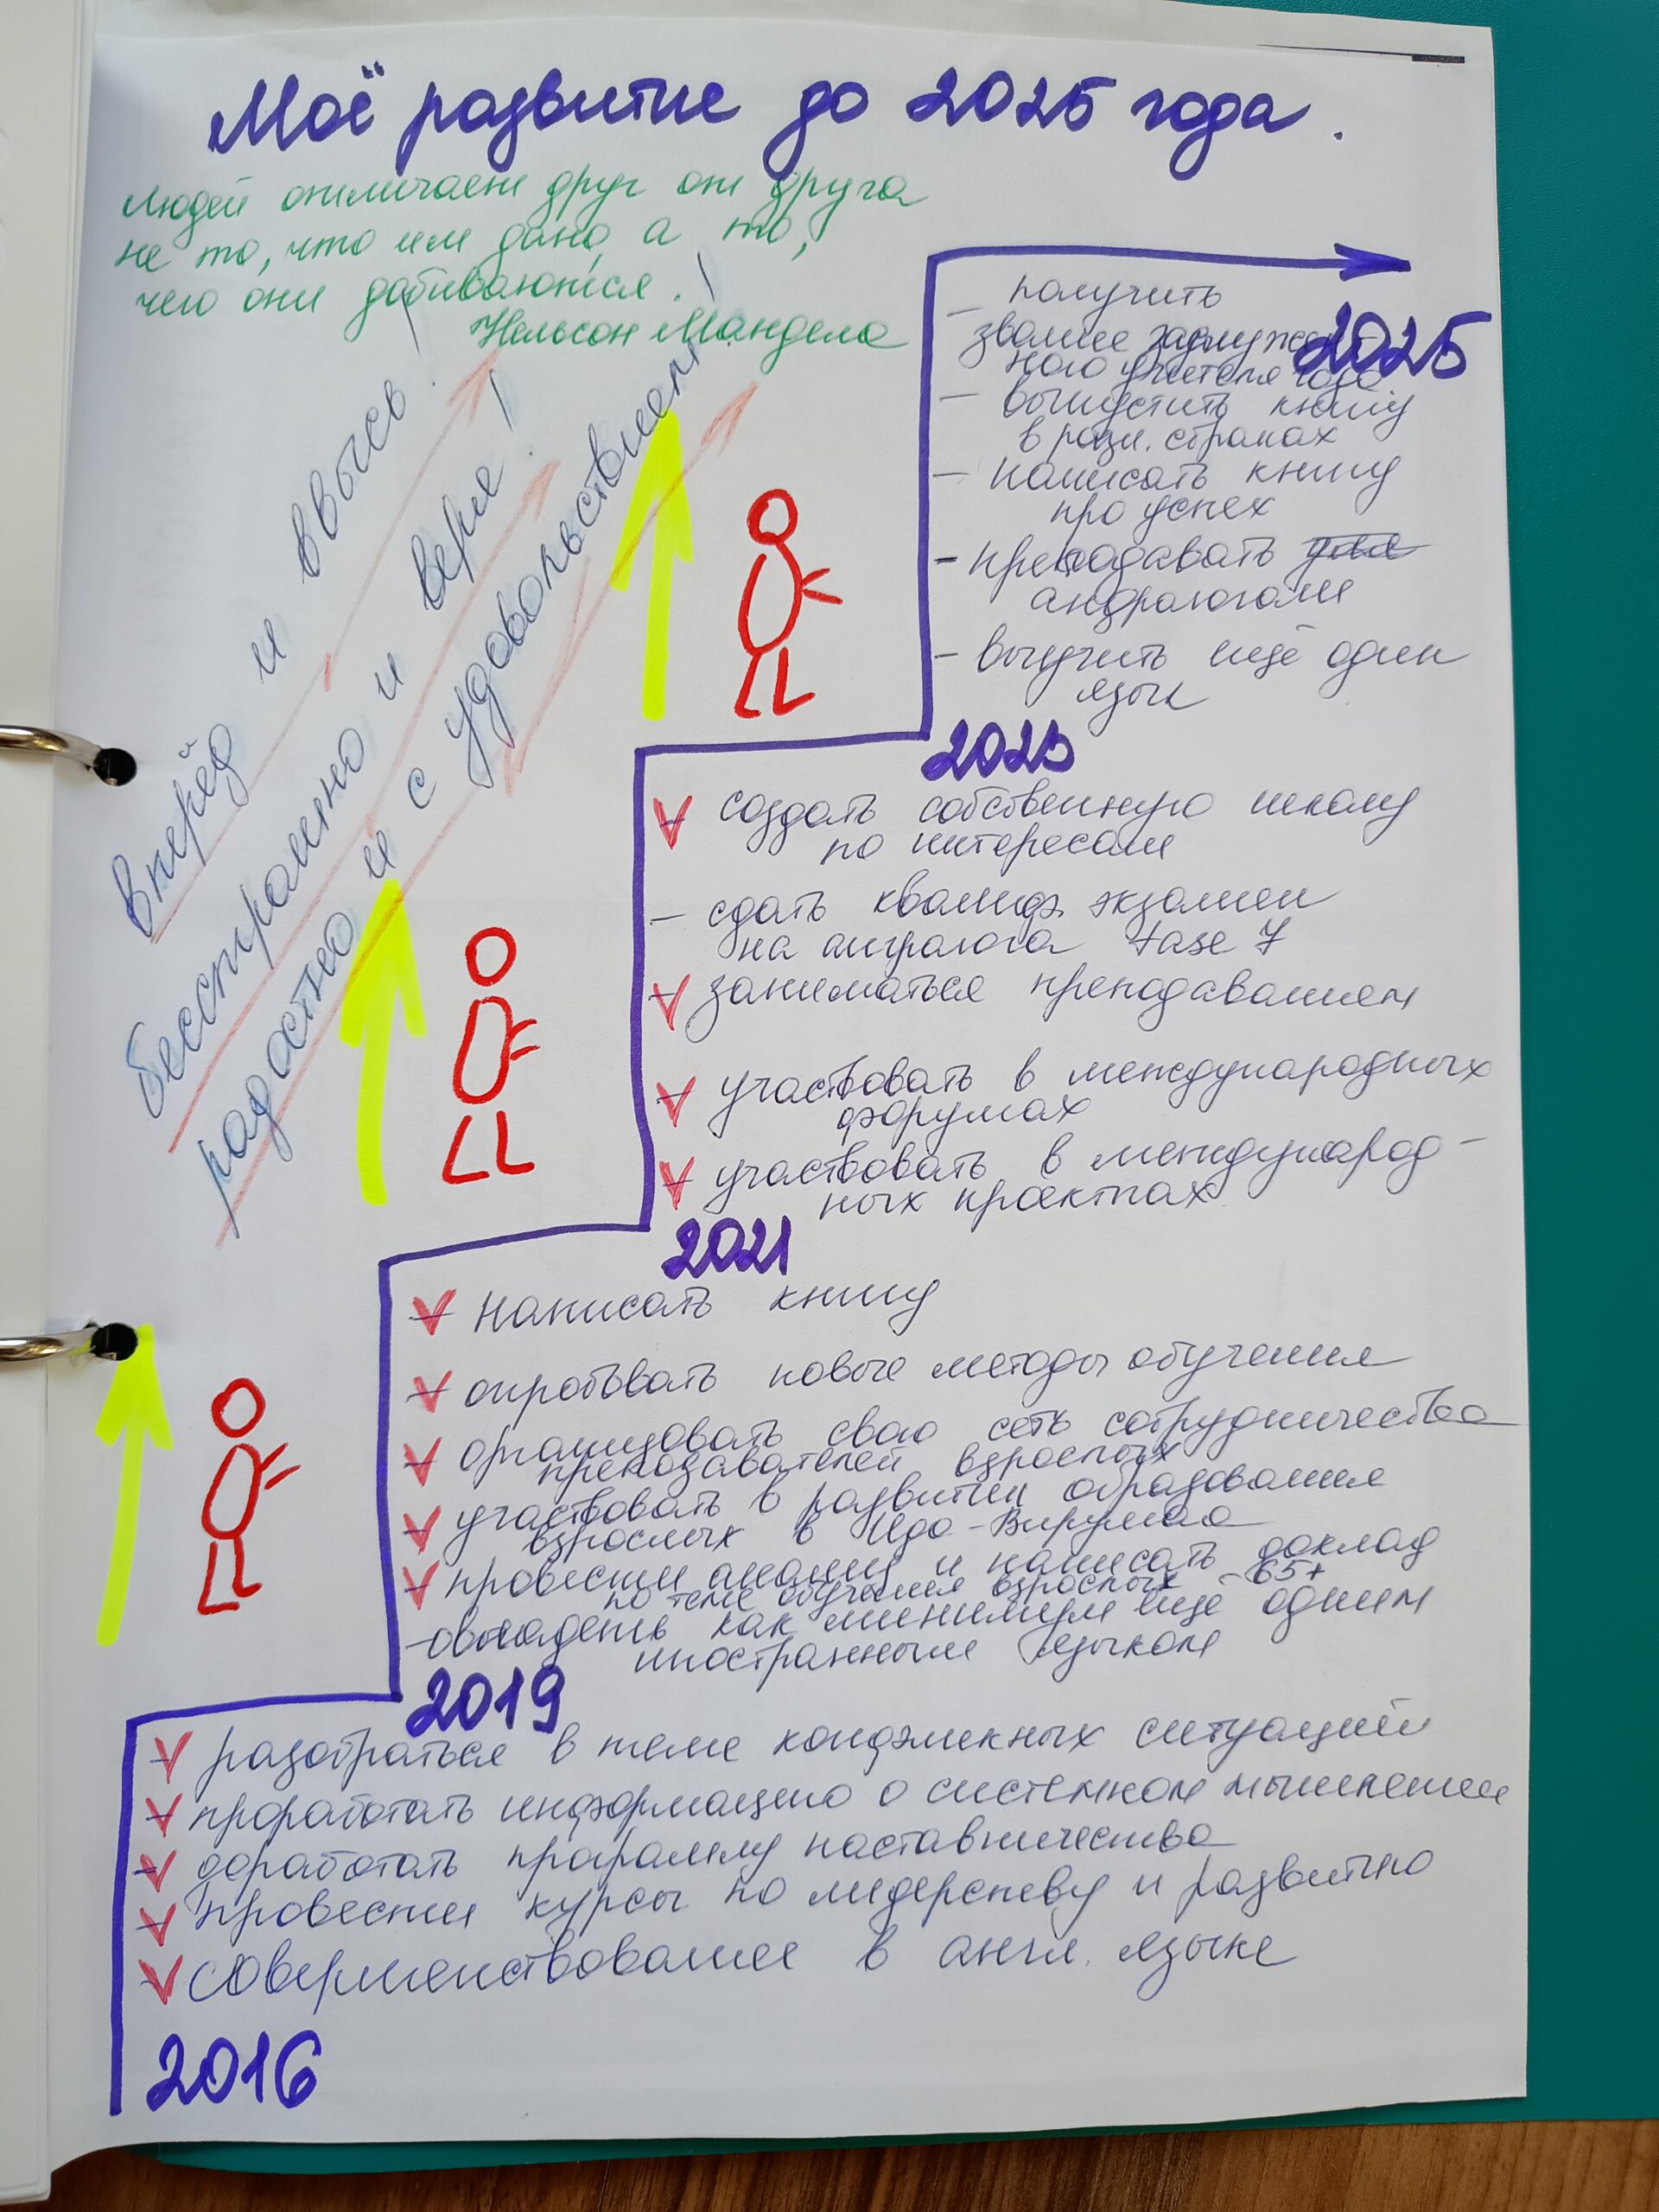 Моё развитие до 2025 года.
Людей отличает друг от друга
не то, что им дано, а то,
чего они добиваются!
Нельсон Мандела
вперёд и ввысь!
бесстрашно и верю!
радостно и с удовольствием!
- получить
звание заслужен-
2025
ного учителя года
- выпустить книгу
в разн. странах
- написать книгу
про успех
- преподавать
андрагогам
- выучить ещё один
язык
2023
создать собственную школу
по интересам
- сдать квалиф. экзамен
на андрагога tase 7
заниматься преподаванием
участвовать в международных
форумах
участвовать в международ-
ных проектах
2021
написать книгу
опробовать новые методы обучения
организовать свою сеть сотрудничества
преподавателей взрослых
участвовать в развитии образования
взрослых в Идо-Вирумаа
провести анализ и написать доклад
по теме обучения взрослых - 65+
- овладеть как минимум ещё одним
иностранным языком
2019
разобраться в теме конфликных ситуаций
проработать информацию о системном мышлении
доработать программу наставничества
провести курсы по лидерству и развитию
совершенствование в англ. языке
2016